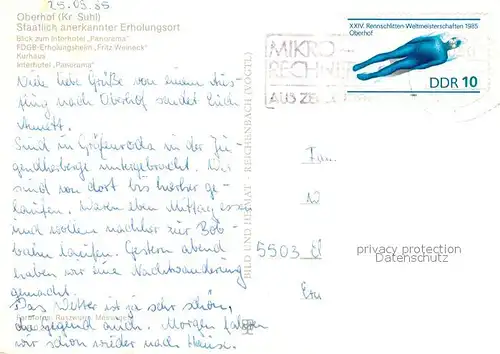 25.05.85
Oberhof (Kr. Suhl)
Staatlich anerkannter Erholungsort
Blick zum Interhotel „Panorama"
FDGB-Erholungsheim „Fritz Weineck"
Kurhaus
Interhotel „Panorama"
Viele liebe Grüße von einem Aus-
flug nach Oberhof sendet Euch
Annett.
Sind in Gräfenroda in der Ju-
gendherberge untergebracht. Wir
sind von dort bis hierher ge-
laufen. Waren eben Mittag essen
und wollen nachher zur Bob-
bahn laufen. Gestern abend
haben wir eine Nachtwanderung
gemacht.
Das Wetter ist ja sehr schön,
die Gegend auch. Morgen fahren
wir schon wieder nach Hause.
BILD UND HEIMAT · REICHENBACH (VOGTL)
MIKRO-
AUS
XXIV. Rennschlitten-Weltmeisterschaften 1985
Oberhof
DDR 10
Fam.
5503
privacy protection
Datenschutz